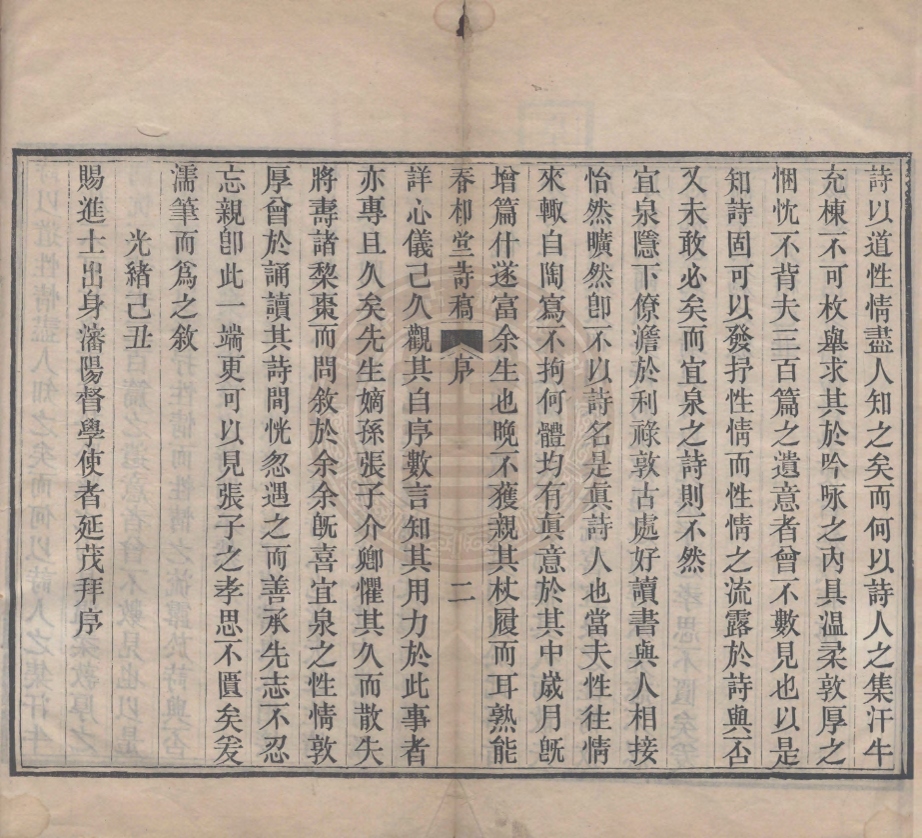 詩以道性情盡人知之矣而何以詩人之集汗牛
充棟不可枚舉求其於吟咏之內具溫柔敦厚之
悃忱不背夫三百篇之遺意者曾不數見也以是
知詩固可以發抒性情而性情之流露於詩與否
又未敢必矣而宜泉之詩則不然
宜泉隱下僚澹於利祿敦古處好讀書與人相接
怡然曠然卽不以詩名是眞詩人也當夫性往情
來輙自陶寫不拘何體均有眞意於其中歲月旣
增篇什遂富余生也晚不獲親其杖履而耳熟能
春柳堂詩稿 序 二
詳心儀己久觀其自序數言知其用力於此事者
亦專且久矣先生嫡孫張子介卿懼其久而散失
將壽諸棃棗而問敘於余余旣喜宜泉之性情敦
厚曾於誦讀其詩間恍忽遇之而善承先志不忍
忘親卽此一端更可以見張子之孝思不匱矣爰
濡筆而爲之敘
光緒己丑
賜進士出身瀋陽督學使者延茂拜序